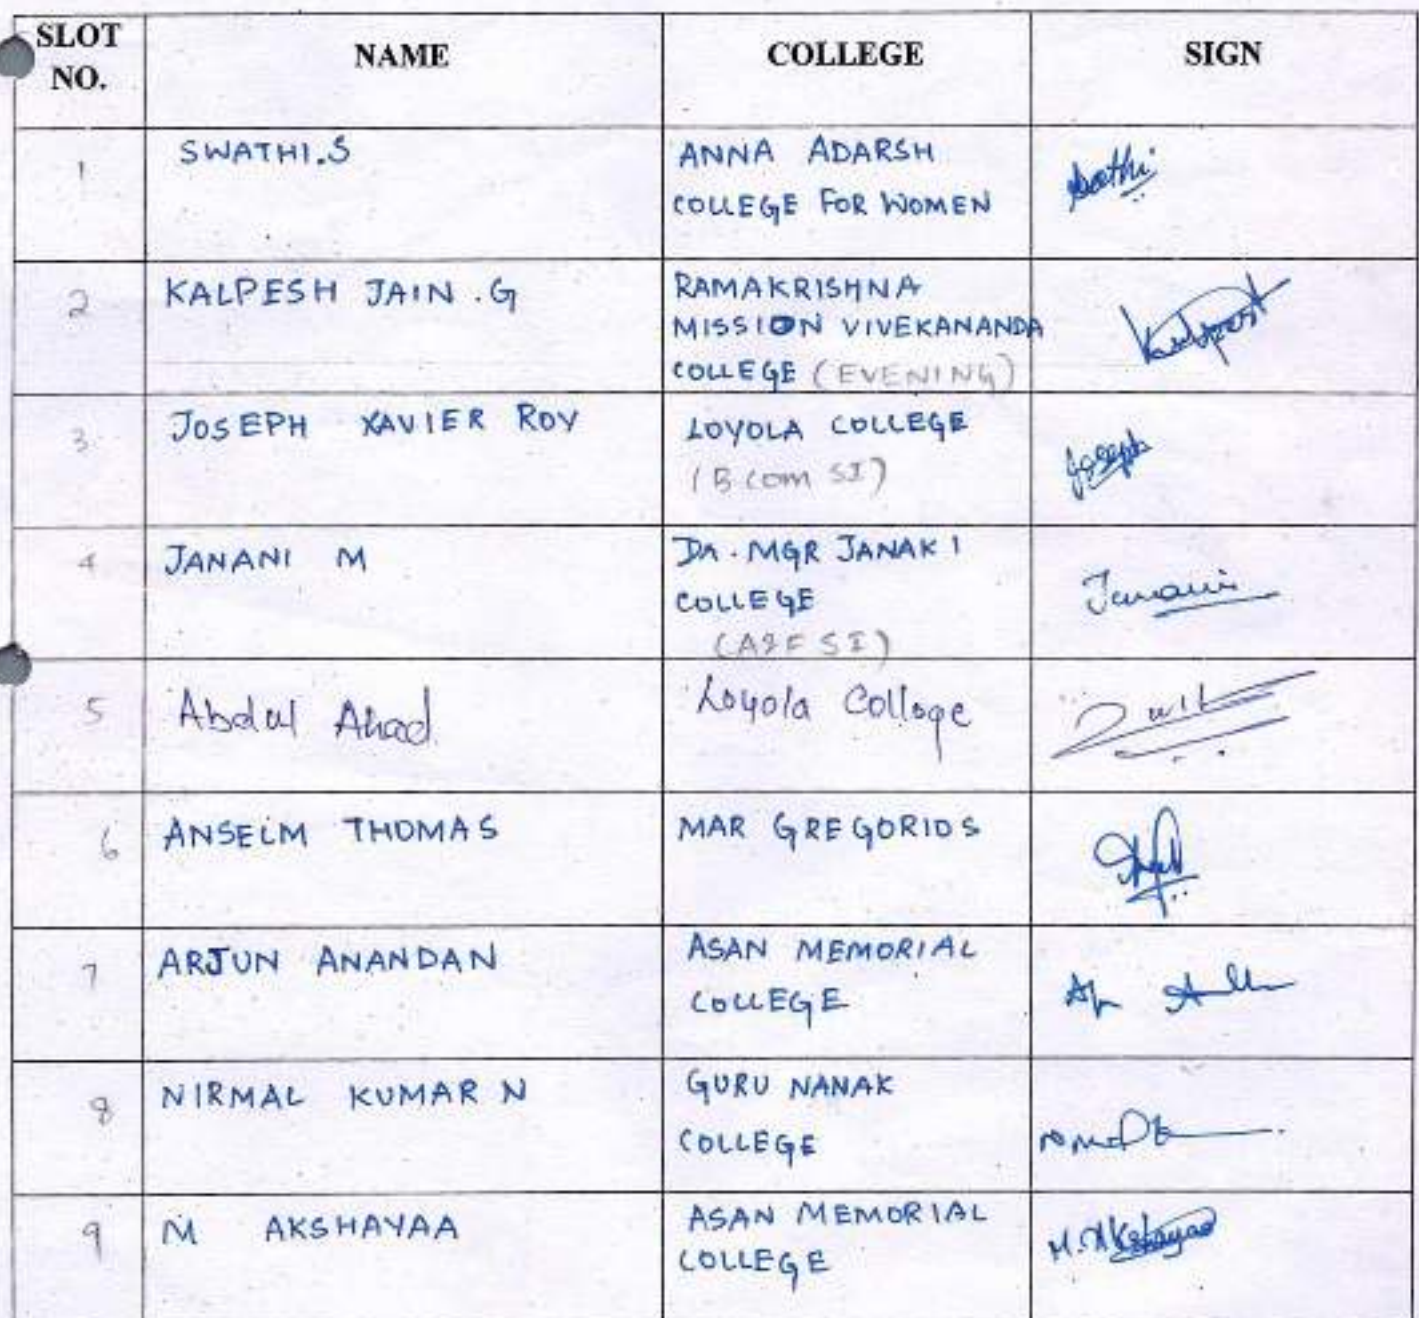 SLOT NO. NAME COLLEGE SIGN
1 SWATHI.S ANNA ADARSH
COLLEGE FOR WOMEN Swathi
2 KALPESH JAIN .G RAMAKRISHNA
MISSION VIVEKANANDA
COLLEGE (EVENING) Kalpesh
3 JOSEPH XAVIER ROY LOYOLA COLLEGE
(B.com SI) Joseph
4 JANANI M DR. MGR JANAKI
COLLEGE
(A&F SI) Janani
5 Abdul Ahad Loyola College
6 ANSELM THOMAS MAR GREGORIOS
7 ARJUN ANANDAN ASAN MEMORIAL
COLLEGE
8 NIRMAL KUMAR N GURU NANAK
COLLEGE
9 M AKSHAYAA ASAN MEMORIAL
COLLEGE M. Akshayaa